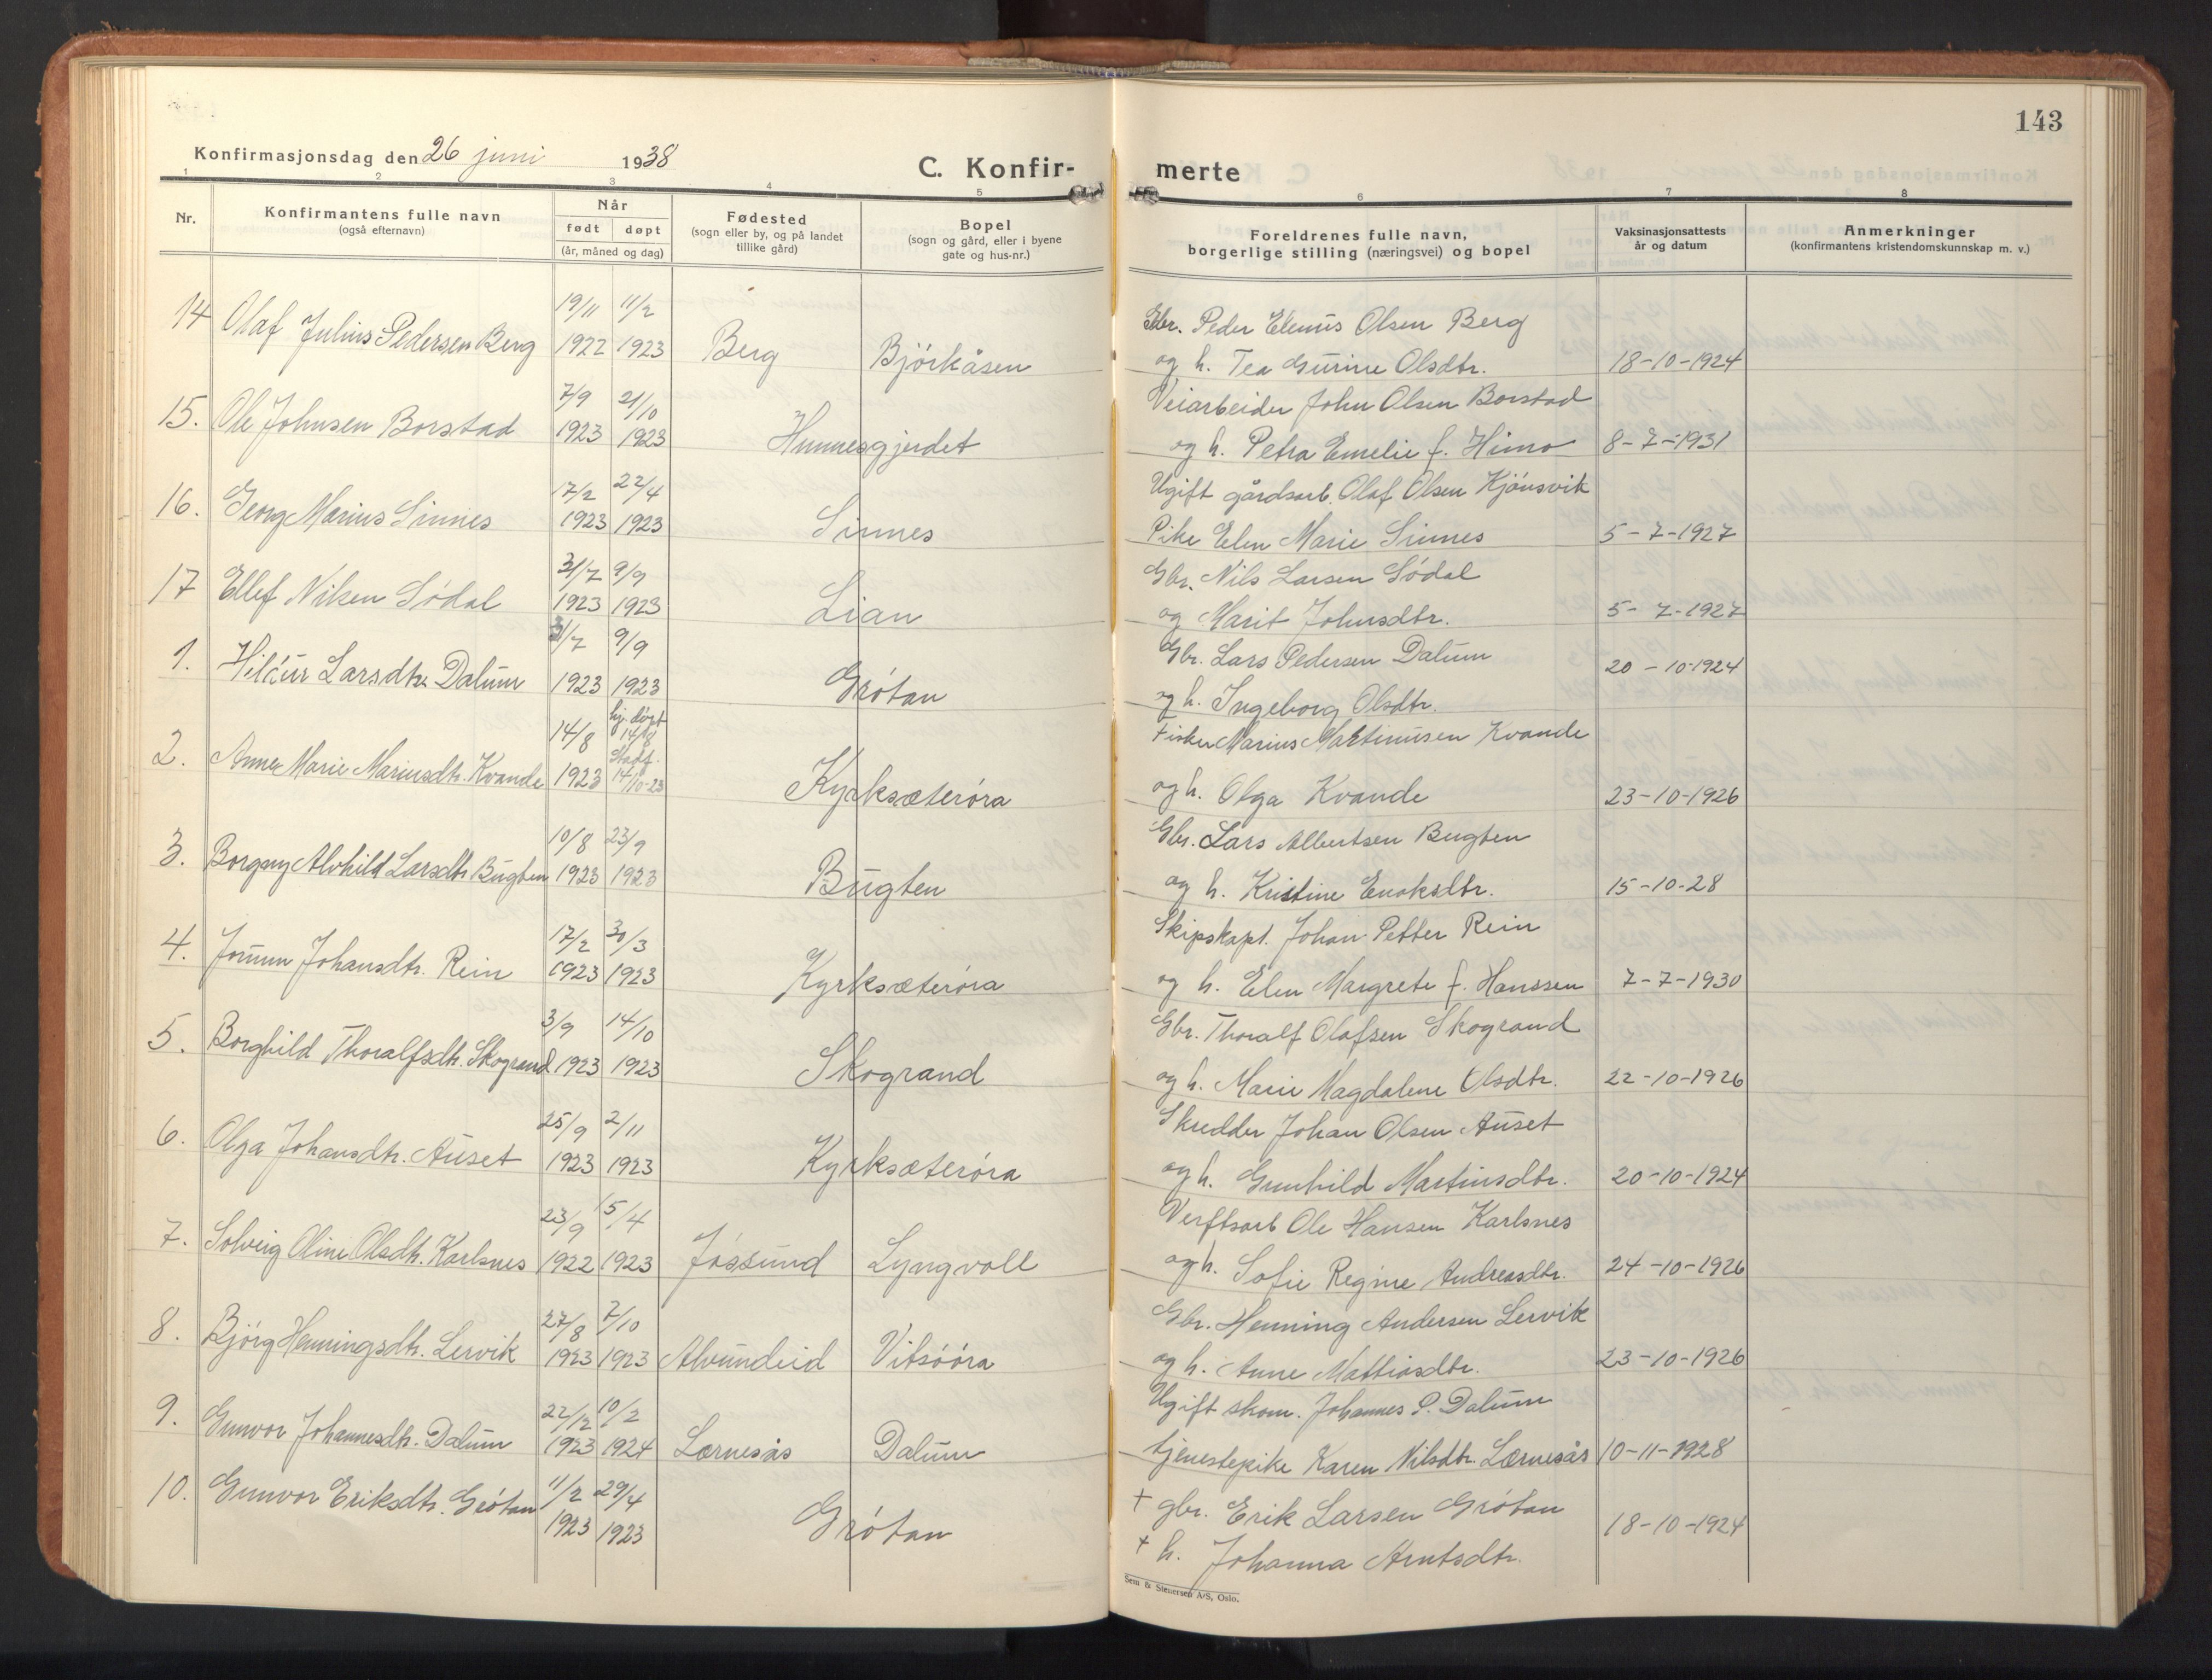 143
Konfirmasjonsdag den 26 juni 1938
C. Konfir-
merte
1 2 3 4 5 6 7 8
Nr.
Konfirmantens fulle navn
(også efternavn)
Når
født døpt
(år, måned og dag)
Fødested
(sogn eller by, og på landet
tillike gård)
Bopel
(sogn og gård, eller i byene
gate og hus-nr.)
Foreldrenes fulle navn,
borgerlige stilling (næringsvei) og bopel
Vaksinasjonsattests
år og datum
Anmerkninger
(konfirmantens kristendomskunnskap m. v.)
19/11 11/2 Gbr. Peder Elenus Olsen Berg
14 Olaf Julius Pedersen Berg 1922 1923 Berg Bjórkåsen og h. Tea Gurine Olsdtr. 18-10-1924
7/9 21/10 Veiarbeider John Olsen Borstad
15. Ole Johnsen Borstad 1923 1923 Hunnesgjerdet og h. Petra Emelie f. Himo 8-7-1931
17/2 22/4 Ugift gårdsarb. Olaf Olsen Kjónsvik
16. Georg Marius Sinnes 1923 1923 Sinnes Pike Elen Marie Sinnes 5-7-1927
31/7 9/9 Gbr. Nils Larsen Sódal
17 Ellef Nilsen Sódal 1923 1923 Lian og Marit Johnsdtr. 5-7-1927
31/7 9/9 Gbr. Lars Pedersen Dalum 20-10-1924
1. Larsdtr. Dalum 1923 1923 Grótan og h. Ingeborg Olsdtr.
14/8 hj. døpt 14/8 Fisker Marius Martinusen Kvande
2. Anne Marie Mariusdtr. Kvande 1923 Stadf. 14/10-23 Kyrksæteróra og h. Olga Kvande 23-10-1926
10/8 23/9 Gbr. Lars Albertsen Bugten
3. Borgny Alvhild Larsdtr Bugten 1923 1923 Bugten og h. Kristine Enoksdtr. 15-10-28
17/2 30/3 Skipskapt. Johan Petter Rein
4. Jorunn Johansdtr. Rein 1923 1923 Kyrksæteróra og h. Elen Margrete f. Hanssen 7-7-1930
3/9 14/10 Gbr. Thoralf Olafsen Skogrand
5. Borghild Thoralfsdtr. Skogrand 1923 1923 Skogrand og h. Marie Magdalene Olsdtr. 22-10-1926
25/9 2/11 Skredder Johan Olsen Auset
6. Olga Johansdtr. Auset 1923 1923 Kyrksæteróra og h. Gunhild Martinsdtr. 20-10-1924
23/9 15/4 Verftsarb Ole Hansen Karlsnes
7. Solveig Oline Olsdtr. Karlsnes 1922 1923 Jóssund Lyngvoll og h. Sofie Regine Andreasdtr. 24-10-1926
27/8 7/10 Gbr. Henning Andersen Lervik
8. Bjórg Henningsdtr. Lervik 1923 1923 Alvundeid Vitsóóra og h. Anne Mattiasdtr. 23-10-1926
22/12 10/2 Ugift skom. Johannes P. Dalum
9. Gunvor Johannesdtr. Dalum 1923 1924 Lernesås Dalum tjenestepike Karen Nilsdtr. Lernesås 10-11-1928
11/2 29/4 + gbr. Erik Larsen Grótan
10. Gunvor Eriksdtr. Grótan 1923 1923 Grótan + h. Johanna Arntsdtr. 18-10-1924
Sem & Stenersen A/S, Oslo.